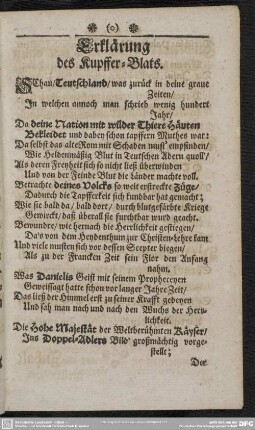 (o)
Erklärung
des Kupffer-Blats.
SChau/Teutschland/was zurück in deine graue
Zeiten/
In welchen annoch man schrieb wenig hundert
Jahr/
Da deine Nation mit wilder Thiere Häuten
Bekleidet und dabey schon tapffern Muthes war:
Da selbst das alte Rom mit Schaden must' empfinden/
Wie Heldenmäßig Blut in Teutschen Adern quoll/
Als deren Freyheit sich so nicht ließ überwinden
Und von der Feinde Blut die Hände machte voll.
Betrachte deines Volcks so weit erstreckte Züge/
Dadurch die Tapfferkeit sich kundbar hat gemacht;
Wie sie bald da/ bald dort/ durch blutgefärbte Kriege
Gewürckt/ daß überall sie furchtbar wurd geacht.
Bewundre/ wie hernach die Herrlichkeit gestiegen/
Da's von dem Heydenthum zur Christen-Lehre kam
Und viele musten sich vor dessen Scepter biegen/
Als zu der Francken Zeit sein Flor den Anfang
nahm.
Was Danielis Geist mit seinem Prophezeyen
Geweissagt hatte schon vor langer Jahre Zeit/
Das ließ der Himmel erst zu seiner Krafft gedeyen
Und sah man nach und nach den Wuchs der Herr-
lichkeit.
Die Hohe Majestät der Weltberühmten Käyser/
Ins Doppel-Adlers Bild großmächtig vorge-
stellt;
Der